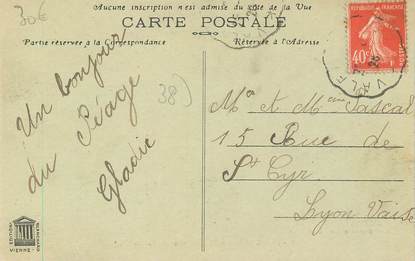 30€
Aucune inscription n'est admise du côté de la Vue
CARTE POSTALE
Partie réservée à la Correspondance
Réservée à l'Adresse
RÉPUBLIQUE FRANÇAISE
40c
38)
Un bonjour
du Péage
Gladie
Mr et Mme Pascal
15 Rue de
St Cyr
Lyon Vaise
VIENNE